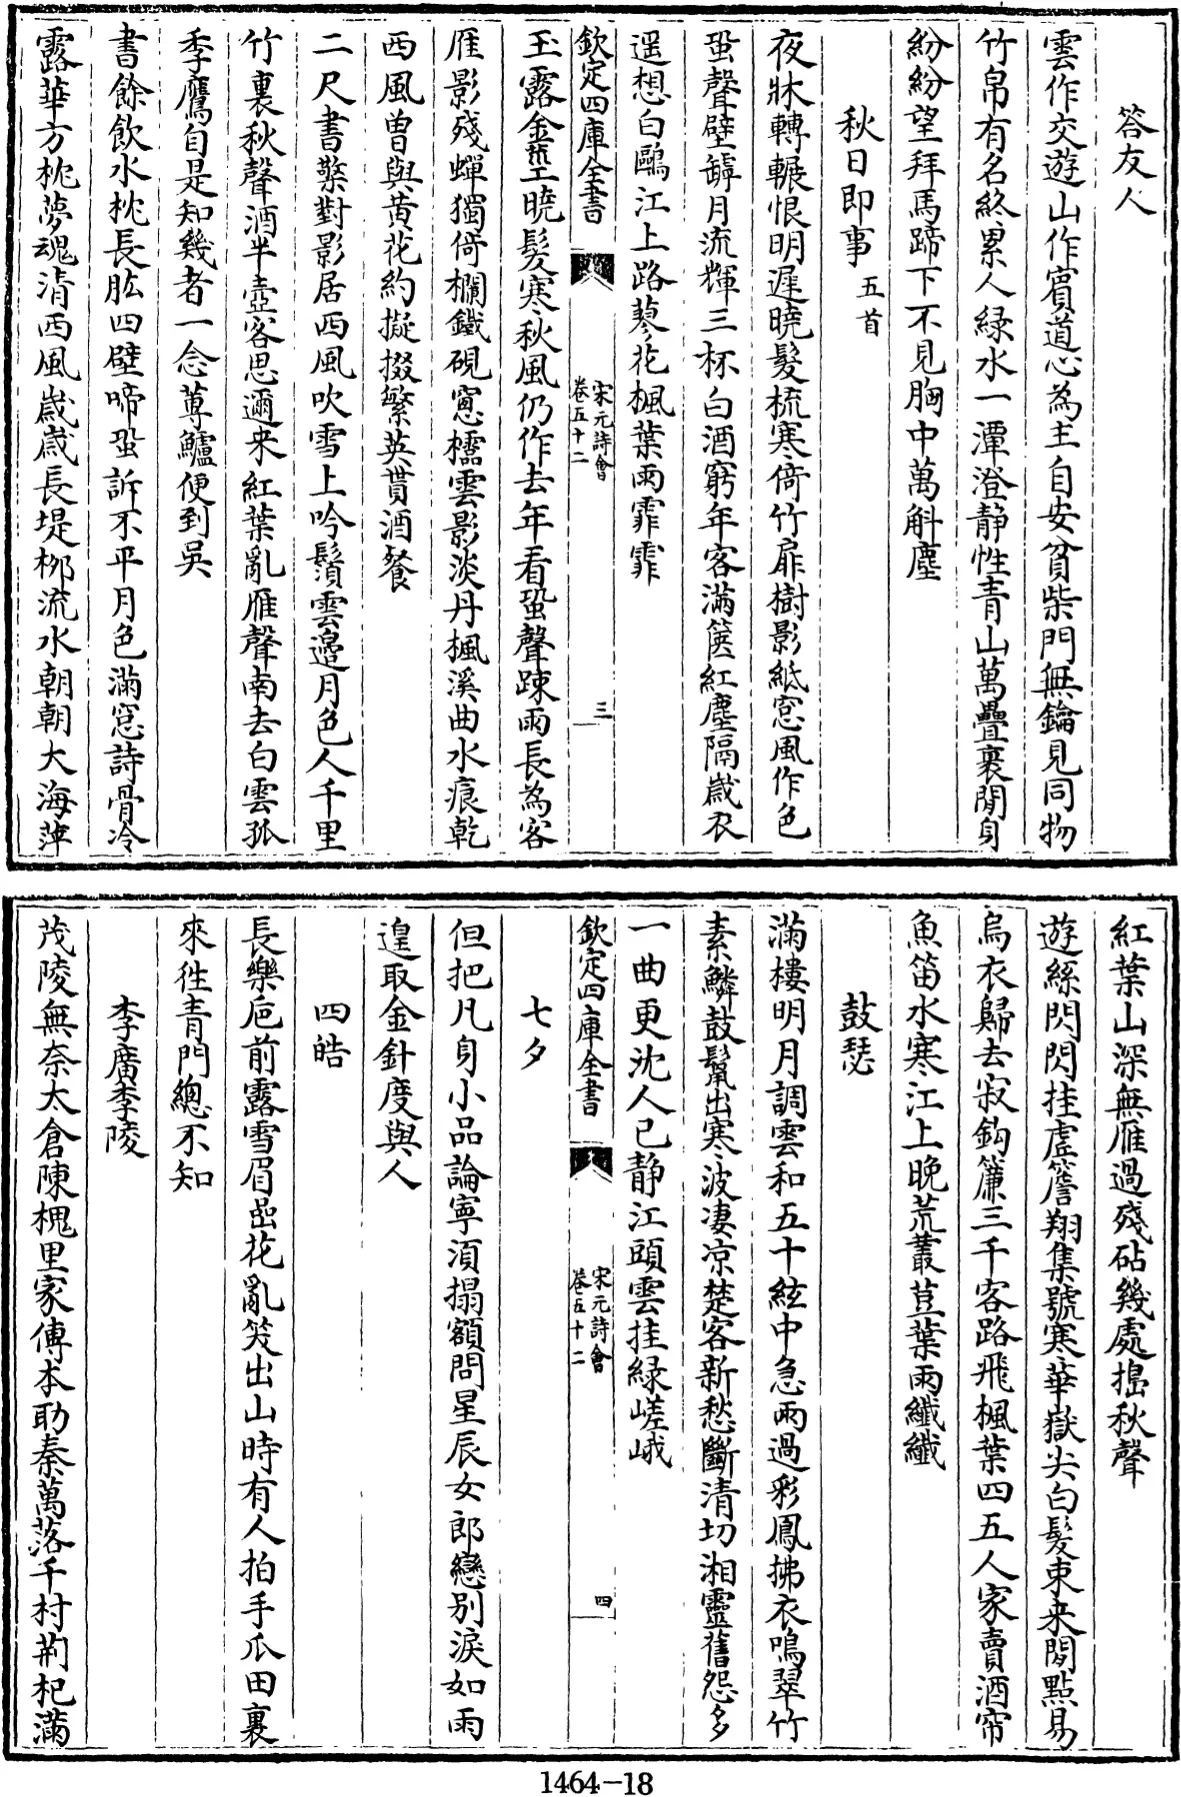 答友人
雲作交遊山作賓道心為主自安貧柴門無鑰見同物
竹帛有名終累人緑水一潭澄静性青山萬疊裹閒身
紛紛望拜馬蹄下不見胸中萬斛塵
秋日即事五首
夜牀轉輾恨明遲曉髮梳寒倚竹扉樹影紙窓風作色
蛩聲壁罅月流輝三杯白酒窮年客滿篋紅塵隔嵗衣
遥想白鷗江上路蓼花楓葉雨霏霏
欽定四庫全書
宋元詩會
卷五十二
三
玉露金莖曉髮寒秋風仍作去年看蛩聲踈雨長為客
雁影殘蟬獨倚欄鐵硯窓櫺雲影淡丹楓溪曲水痕乾
西風曽與黄花約擬掇繁英貰酒餐
二尺書檠對影居西風吹雪上吟鬚雲邉月色人千里
竹裏秋聲酒半壺客思邇来紅葉亂雁聲南去白雲孤
季鷹自是知幾者一念蓴鱸便到吳
書餘飲水枕長肱四壁啼蛩訴不平月色滿窓詩骨冷
露華方枕夢魂清西風嵗嵗長堤栁流水朝朝大海萍
紅葉山深無雁過殘砧幾處搗秋聲
遊絲閃閃挂虚簷翔集號寒華嶽尖白髮束来閒點易
烏衣歸去寂鈎簾三千客路飛楓葉四五人家賣酒帘
魚笛水寒江上晚荒叢荳葉雨纖纖
鼓瑟
滿樓明月調雲和五十絃中急雨過彩鳳拂衣鳴翠竹
素鱗鼓鬛出寒波凄凉楚客新愁斷清切湘靈舊怨多
一曲更沈人已静江頭雲挂緑嵯峨
欽定四庫全書
宋元詩會
卷五十二
四
七夕
但把凡身小品論寧湏搨額問星辰女郎戀别淚如雨
遑取金針度與人
四皓
長樂巵前露雪眉嵒花亂笑出山時有人拍手瓜田裏
來徃青門總不知
李廣李陵
茂陵無奈太倉陳槐里家傳本助秦萬落千村荆杞滿
1464-18